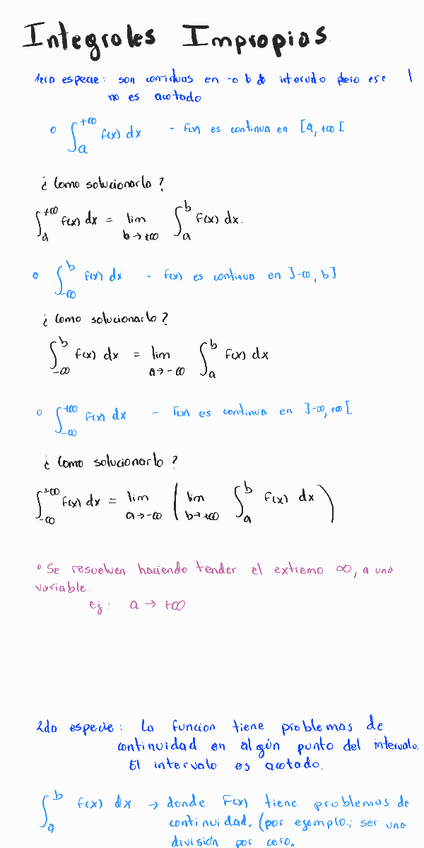 Integrales Impropias
1era especie: son continuas en
no es acotado
∫_a^{+∞} f(x) dx - f(x) es continua en [a, +∞[
¿Como solucionarlo?
∫_a^{+∞} f(x) dx = lim_{b→+∞} ∫_a^b f(x) dx.
∫_{-∞}^b f(x) dx - f(x) es continua en ]-∞, b]
¿Como solucionarlo?
∫_{-∞}^b f(x) dx = lim_{a→-∞} ∫_a^b f(x) dx
∫_{-∞}^{+∞} f(x) dx - f(x) es continua en ]-∞, +∞[
¿Como solucionarlo?
∫_{-∞}^{+∞} f(x) dx = lim_{a→-∞} ( lim_{b→+∞} ∫_a^b f(x) dx )
° Se resuelven haciendo tender el extremo ∞, a una
variable.
ej: a → +∞
2da especie: La funcion tiene problemas de
continuidad en algún punto del intervalo.
El intervalo es acotado.
∫_a^b f(x) dx → donde F(x) tiene problemas de
continuidad. (por ejemplo; ser una
división por cero.